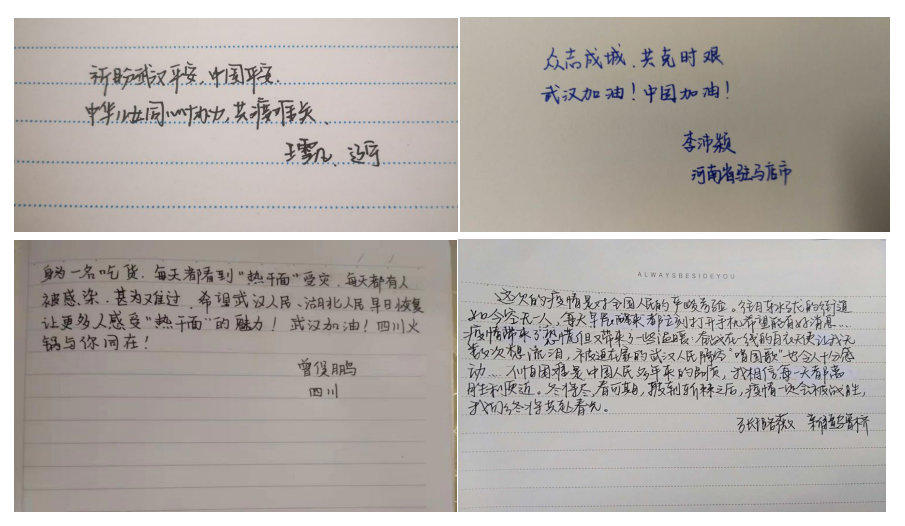 祈盼武汉平安,中国平安。
中华儿女同心协力,共渡难关。
辽宁
众志成城,共克时艰
武汉加油!中国加油!
李沛颖
河南省驻马店市
身为一名吃货,每天都看到“热干面”受灾,每天都有人
被感染,甚为难过,希望武汉人民、湖北人民早日恢复
让更多人感受“热干面”的魅力!武汉加油!四川火
锅与你同在!
曾俊鹏
四川
ALWAYSBESIDEYOU
这次的疫情是对全国人民的严峻考验。往日车水马龙的街道
如今空无一人,每天早晨醒来都立刻打开手机希望能有好消息…
疫情带来了恐慌但又带来了一些温暖:奋战在一线的白衣天使让我无
数次想流泪,被迫在家的武汉人民隔窗“唱国歌”也令人十分感
动…不惧困难是中国人民多年来的印质,我相信每一天都离
胜利更近。冬将尽,春可期,披荆斩棘之后,疫情一定会被战胜,
我们终将共赴春光。